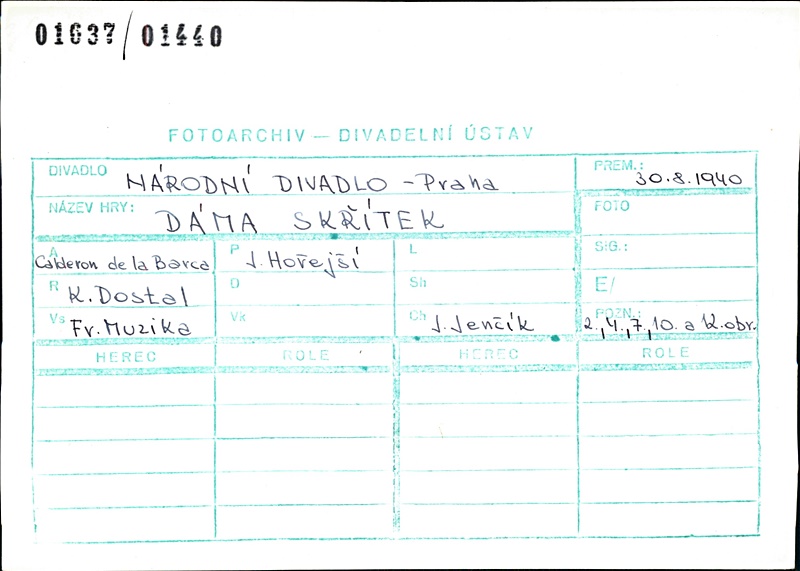 01637/01440
FOTOARCHIV — DIVADELNÍ ÚSTAV
DIVADLO NÁRODNÍ DIVADLO - Praha PREM.: 30.8.1940
NÁZEV HRY: DÁMA SKŘÍTEK FOTO
A Calderon de la Barca P J. Hořejší L SIG.:
R K. Dostal D Sh E/
Vs Fr. Muzika Vk Ch J. Jenčík POZN.: 2., 4., 7, 10. a 12. obr.
HEREC ROLE HEREC ROLE